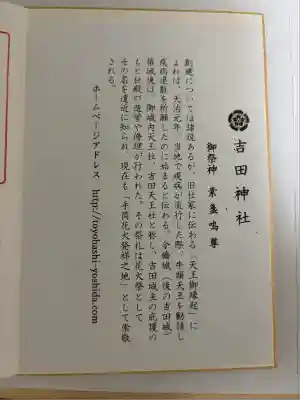 吉田神社
御祭神 素戔嗚尊
創建については諸説あるが、旧社家に伝わる「天王御縁起」に
よれば、天治元年、当地で疫病が流行した際、牛頭天王を勧請し
疫病退散を祈願したのに始まると伝わる。今橋城（後の吉田城）
築城後は、御城内天王社、吉田天王社と称し、吉田城主の庇護の
もと社殿の造営や修理が行われた。その祭礼は花火祭として
その名を遠近に知られ、現在も「手筒花火発祥之地」として崇敬
される。
ホームページアドレス http://toyohashi-yoshida.com